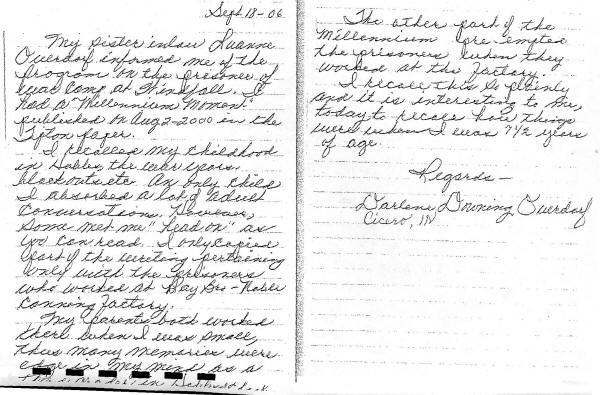 Sept. 18-06
My sister inlaw Luanne
Overdorf informed me of the
program "on the prisoner of
war camp at Windfall. I
had a "Millennium Moment"
published on Aug 2-2000 in the
Tipton paper.
I recalled my childhood
in Hobbs, the war years,
blackouts etc. An only child
I absorbed a lot of adult
conversations. However,
some met me "head on" as
you can read. I only copied
part of the writing pertaining
only with the prisoners
who worked at Bay Bro-Hobbs
Canning factory.
My parents both worked
there when I was small,
thus many memories were
in my mind as a
The other part of the
Millennium pre empted
the prisoners when they
worked at the factory.
I recall this so plainly
and it is interesting to me,
today to recall how things
were when I was 7½ years
of age.
Regards -
Darlene Downing Overdorf
Cicero, IN